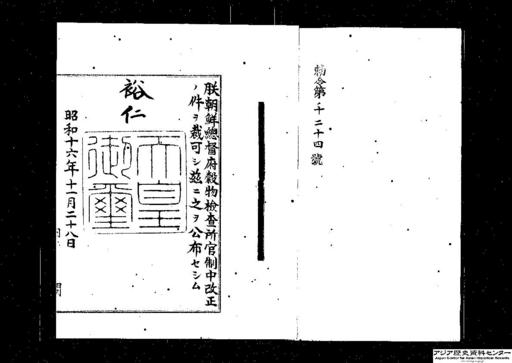 勅令第千二十四號
朕朝鮮總督府穀物檢查所官制中改正
ノ件ヲ裁可シ茲ニ之ヲ公布セシム
裕仁
天皇御璽
昭和十六年十一月二十八日
内閣
アジア歴史資料センター
Japan Center for Asian Historical Records